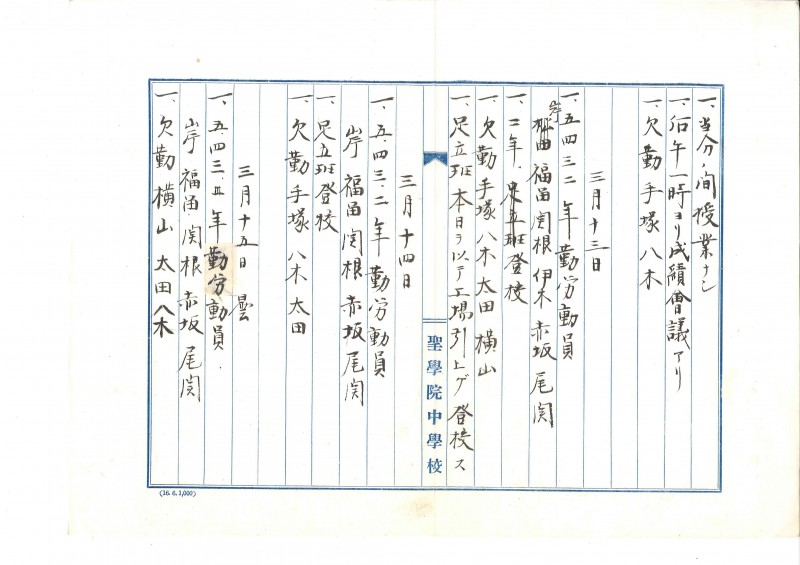 一、当分ノ間授業ナシ
一、后午一時ヨリ成績會議アリ
一、欠勤 手塚 八木
三月十三日
一、五四三二年勤労動員
岸 福田 関根 伊木 赤坂 尾関
一、二年、足立班登校
一、欠勤 手塚 八木 太田 横山
一、足立班本日ヲ以テ工場引上ゲ登校ス
聖學院中學校
三月十四日
一、五、四三、二年勤労動員
岸 福田 関根 赤坂 尾関
一、足立班登校
一、欠勤 手塚 八木 太田
三月十五日 曇
一、五、四三、二年勤労動員、
岸 福田 関根 赤坂 尾関
一、欠勤 横山 太田 八木
(16.6.1,000)